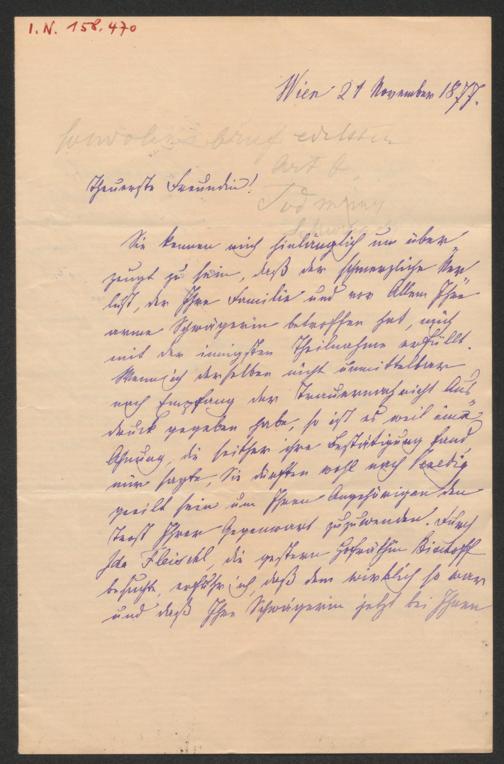 I.N. 158.470
Wien 21 November 1877.
Kondolenzbrief edelster
Art
Tod
Theuerste Freundin!
Sie kennen mich hinlänglich um über„
zeugt zu sein, daß der schmerzliche Ver„
lust, der Ihre Familie und vor Allem Ihre
arme Schwägerin betroffen hat, mich
mit der innigsten Theilnahme erfüllt.
Wenn ich derselben nicht unmittelbar
nach Empfang der Trauernachricht Aus„
druck gegeben habe, so ist es weil eine
Ahnung, die seither ihre Bestätigung fand
mir sagte, Sie dürften wohl nach Venedig
geeilt sein um Ihren Angehörigen den
Trost Ihrer Gegenwart zuzuwenden. Durch
Ida Fleischl, die gestern Hofräthin
besuchte, erfuhr ich, daß dem wirklich so war
und daß Ihre Schwägerin jetzt bei Ihnen